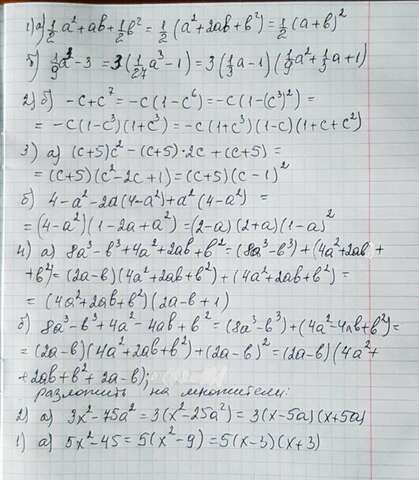 1) а) 1/2 a² + ab + 1/2 b² = 1/2 (a² + 2ab + b²) = 1/2 (a + b)²
б) 1/9 a³ - 3 = 3 (1/27 a³ - 1) = 3 (1/3 a - 1) (1/9 a² + 1/3 a + 1)
2) б) -c + c⁷ = -c (1 - c⁶) = -c (1 - (c³)²) =
= -c (1 - c³)(1 + c³) = -c (1 + c³)(1 - c)(1 + c + c²)
3) а) (c+5)c² - (c+5)·2c + (c+5) =
= (c+5)(c² - 2c + 1) = (c+5)(c - 1)²
б) 4 - a² - 2a(4 - a²) + a² (4 - a²) =
= (4 - a²)(1 - 2a + a²) = (2-a)(2+a)(1-a)²
4) а) 8a³ - b³ + 4a² + 2ab + b² = (8a³ - b³) + (4a² + 2ab +
+ b²) = (2a - b)(4a² + 2ab + b²) + (4a² + 2ab + b²) =
= (4a² + 2ab + b²)(2a - b + 1)
б) 8a³ - b³ + 4a² - 4ab + b² = (8a³ - b³) + (4a² - 4ab + b²) =
= (2a - b)(4a² + 2ab + b²) + (2a - b)² = (2a - b)(4a² +
+ 2ab + b² + 2a - b);
разложить на множители:
2) а) 3x² - 75a² = 3(x² - 25a²) = 3(x - 5a)(x + 5a)
1) а) 5x² - 45 = 5(x² - 9) = 5(x - 3)(x + 3)